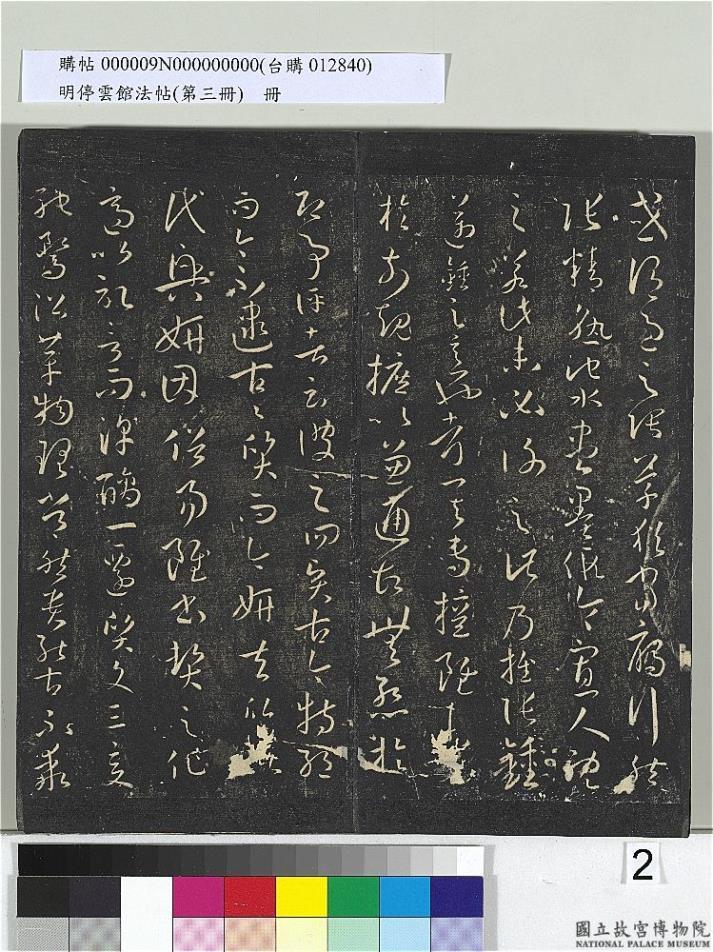 購帖 000009N000000000(台購 012840)
明停雲館法帖(第三冊)　冊
或謂過之張草猶當雁行然
張精熟池水盡墨假令寡人耽
之若此未必謝之此乃推張鍾
邁鍾之意也考其專擅雖未果
於前規摭以兼通故無慚於
即事評者云彼之四賢古今特絕
而今不逮古〻質而今妍夫質以
代興妍因俗易雖書契之作
適以記言而淳醨一遷質文三變
馳鶩沿革物理常然貴能古不乖
2
國立故宮博物院
NATIONAL PALACE MUSEUM